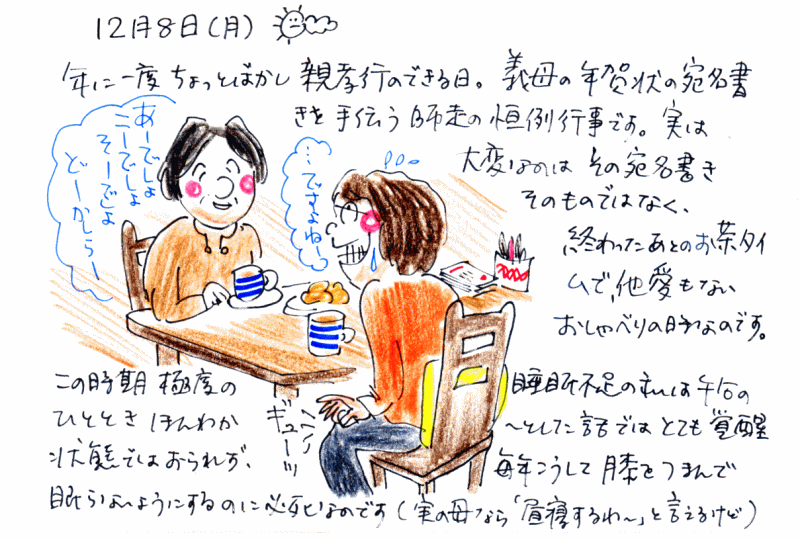 12月8日(月)
年に一度 ちょっとばかし 親孝行のできる日。 義母の年賀状の宛名書
きを手伝う師走の恒例行事です。実は
大変なのは その宛名書き
そのものではなく、
終わったあとのお茶タイ
ムで、他愛もない
おしゃべりの時なのです。
あーでしょ
こーでしょ
そーでしょ
どーかしらー
…ですよねー
この時期 極度の 睡眠不足の私は 午后の
ひととき ほんわか 〜とした話では とても 覚醒
状態ではおられず、 毎年こうして 膝をつまんで
ギューッ
眠らないようにするのに必死なのです(実の母なら「昼寝するわ〜」と言えるけど)